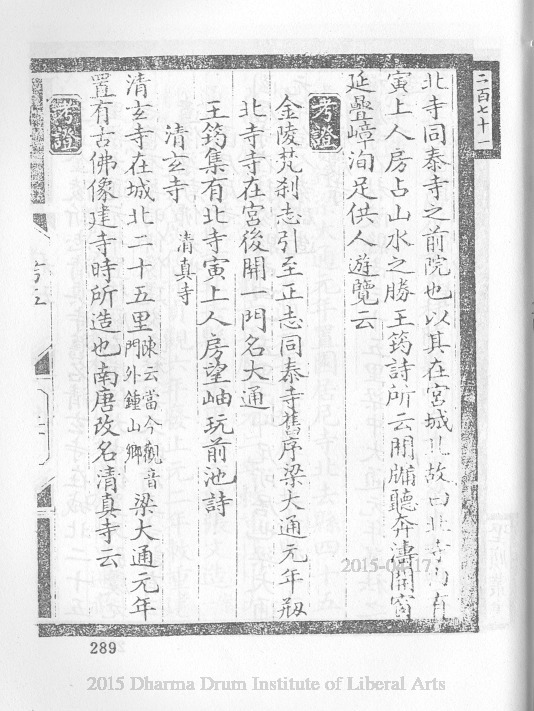 二百七十一
北寺同泰寺之前院也以其在宮城北故曰北寺内有
寅上人房占山水之勝王筠詩所云開牖聽奔濤開窗
延疊嶂洵足供人遊覽云
考證
金陵梵刹志引至正志同泰寺舊序梁大通元年剏
北寺寺在宮後開一門名大通
王筠集有北寺寅上人房望岫玩前池詩
清玄寺 清真寺
清玄寺在城北二十五里陳云當今觀音門外鍾山鄉梁大通元年
置有古佛像建寺時所造也南唐改名清真寺云
考證
2015-04-17
289
2015 Dharma Drum Institute of Liberal Arts